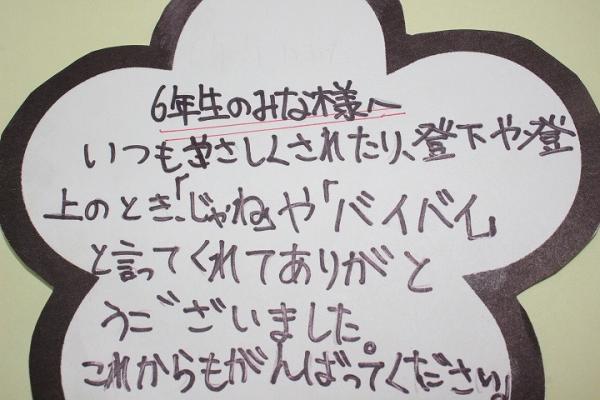 6年生のみな様へ
いつもやさしくされたり、登下や登
上のとき、「じゃね」や「バイバイ」
と言ってくれてありがと
うございました。
これからもがんばってください。